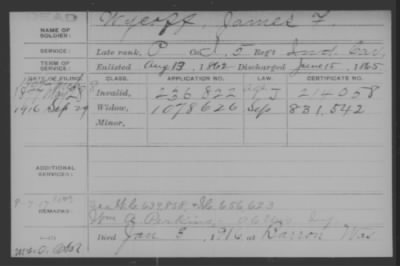 DEAD
NAME OF SOLDIER: Wycoff, James F.
SERVICE: Late rank, P Co. C, 5 Reg't Ind. Cav.
TERM OF SERVICE: Enlisted Aug 13, 1862 Discharged June 15, 1865
DATE OF FILING. CLASS. APPLICATION NO. LAW. CERTIFICATE NO.
1877 Invalid, 236822 214058
1916 Sep 29 Widow, 1078626 Sep 831,542
Minor,
ADDITIONAL SERVICES:
REMARKS: 656623
Wm A. Perkins
Died Jan 3, 1916 at Barron Wis